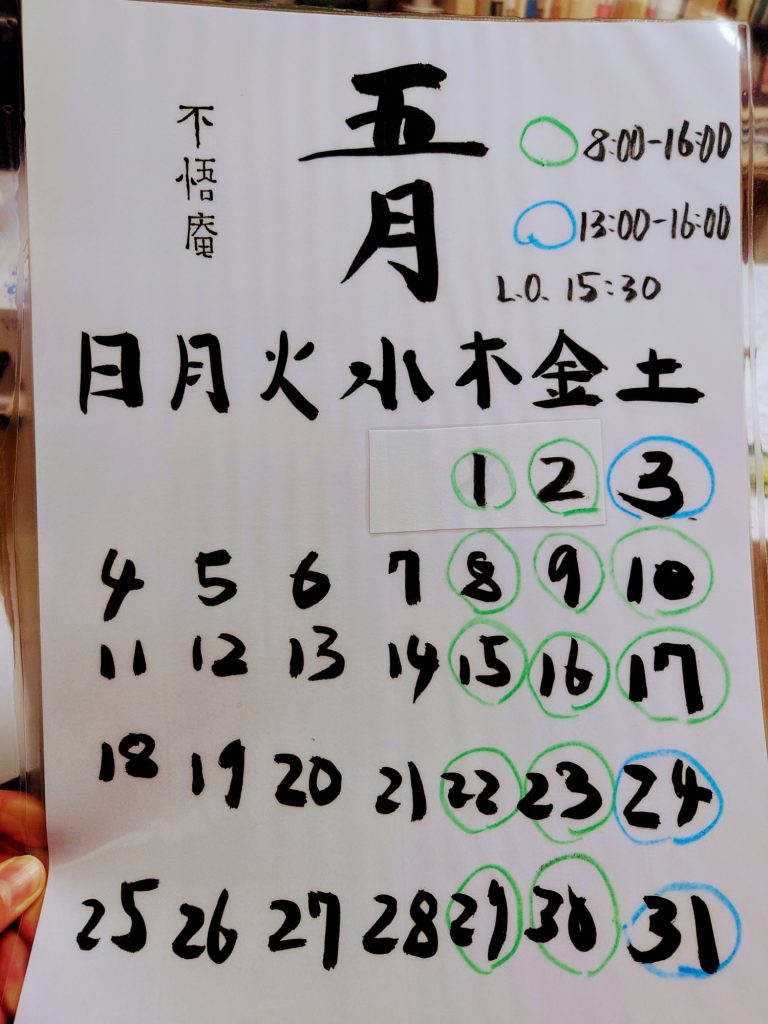 五月
不悟庵
8:00-16:00
13:00-16:00
L.O. 15:30
日 月 火 水 木 金 土
1 2 3
4 5 6 7 8 9 10
11 12 13 14 15 16 17
18 19 20 21 22 23 24
25 26 27 28 29 30 31